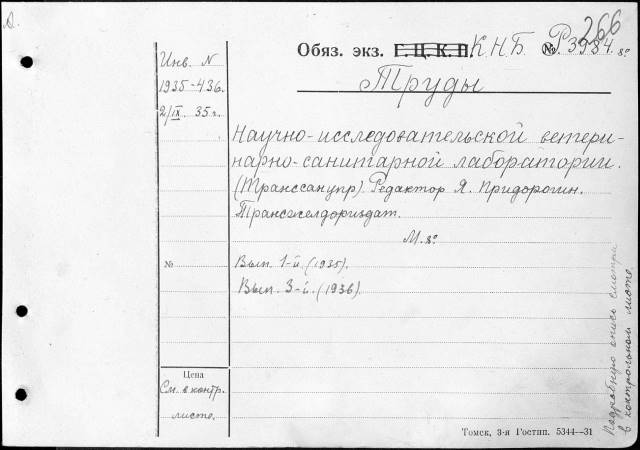 266
Инв. N
1935-436.
2/IX 35 г.
Обяз. экз. Г.Ц.К.П. К.Н.Б № Р3984. 8°
Труды
Научно-исследовательской ветери-
нарно-санитарной лаборатории.
(Транссанупр). Редактор Я. Придорогин.
Трансжелдориздат.
М. 8°
№
Вып. 1-й. (1935).
Вып. 3-й. (1936).
Цена
См. в контр.
листе.
Подробную опись смотри
в контрольном листе.
Томск, 3-я Гостип. 5344—31